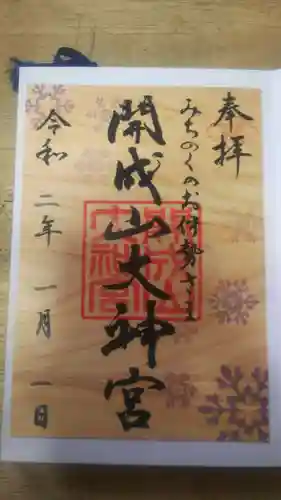 奉拝
みちのくのお伊勢さま
開成山大神宮
令和二年一月一日